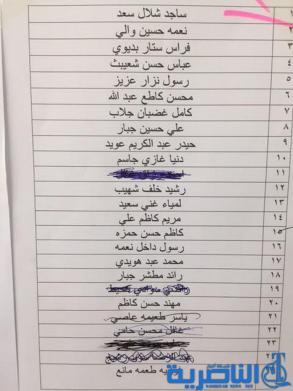 ١ ساجد شلال سعد
٢ نعمه حسين والي
٣ فراس ستار بديوي
٤ عباس حسن شعيبث
٥ رسول نزار عزيز
٦ محسن كاطع عبد الله
٧ كامل غضبان جلاب
٨ علي حسين جبار
٩ حيدر عبد الكريم عويد
١٠ دنيا غازي جاسم
١١
١٢ رشيد خلف شهيب
١٣ لمياء غني سعيد
١٤ مريم كاظم علي
١٥ كاظم حسن حمزه
١٦ رسول داخل نعمه
١٧ محمد عبد هويدي
١٨ رائد مطشر جبار
١٩
٢٠ مهند حسن كاظم
٢١ ياسر طعيمه عاصي
٢٢ محسن
٢٣
طعمه مانع
الناصرية